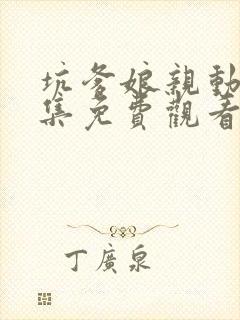 坑爹娘親動
集免費觀看
丁廣泉